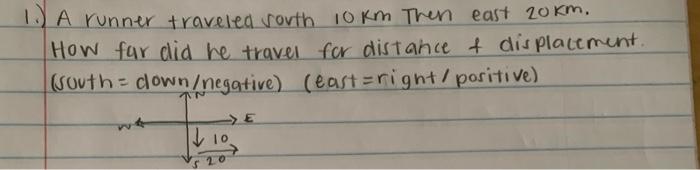 1.) A runner traveled south 10 km Then east 20 km.
How far did he travel for distance & displacement.
(south = down/negative) (east = right/positive)
N
W E
10
S 20